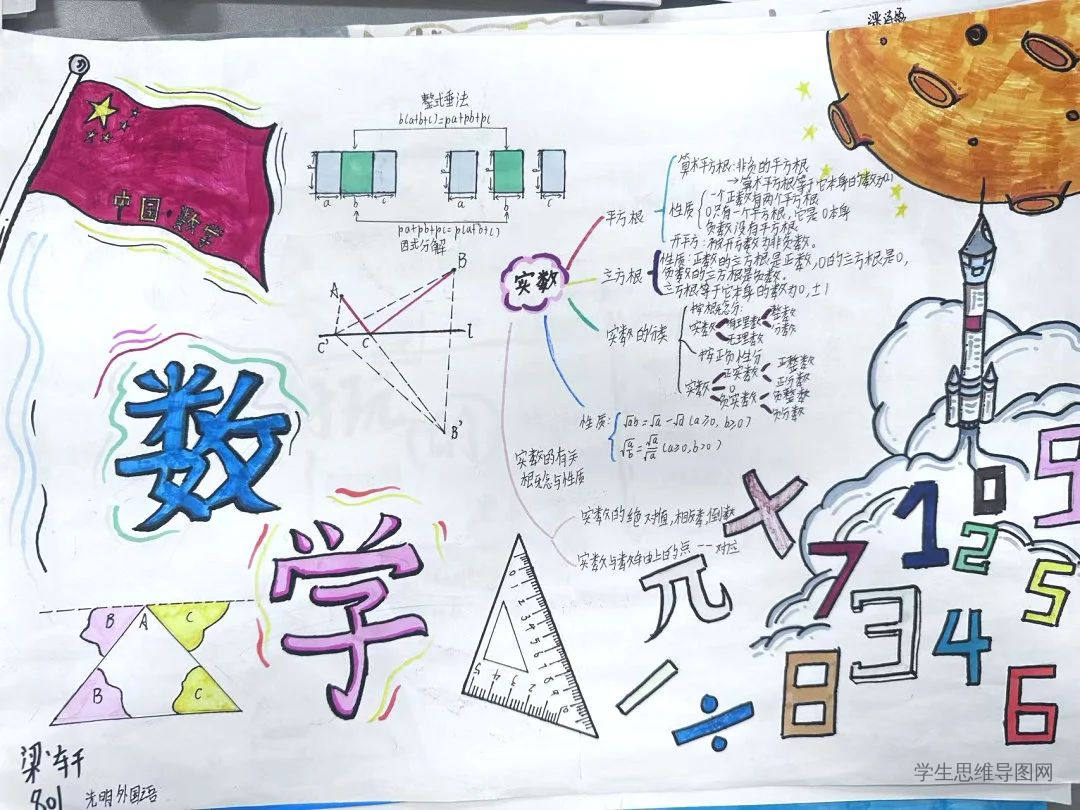 中国·数学
整式乘法
b(a+b+c)=pa+pb+pc
p
p
p
p
a
b
c
a
b
c
pa+pb+pc=p(a+b+c)
因式分解
A
B
C'
C
l
B'
数
学
B
A
C
B
C
实数
平方根
算术平方根:非负的平方根
→算术平方根等于它本身的数为0,1
性质
一个正数有两个平方根
0只有一个平方根,它是0本身
负数没有平方根
开平方:被开方数为非负数。
立方根
性质:正数的立方根是正数,0的立方根是0,
负数的立方根是负数。
立方根等于它本身的数为0,±1
实数的分类
按概念分
实数
有理数
整数
分数
无理数
按正负性分
实数
正实数
正整数
正分数
0
负实数
负整数
负分数
性质:
√ab=√a-√a(a≥0,b≥0)
√a/b=√a/√a(a≥0,b>0)
实数的有关
概念与性质
实数的绝对值,相反数,倒数
实数与数轴上的点一一对应
0 1 2 3 4 5 6 7 8 9 10
5 4 3 2 1
×
π
-
÷
1
0
9
7
2
5
3
4
8
6
801
光明外国语
学生思维导图网